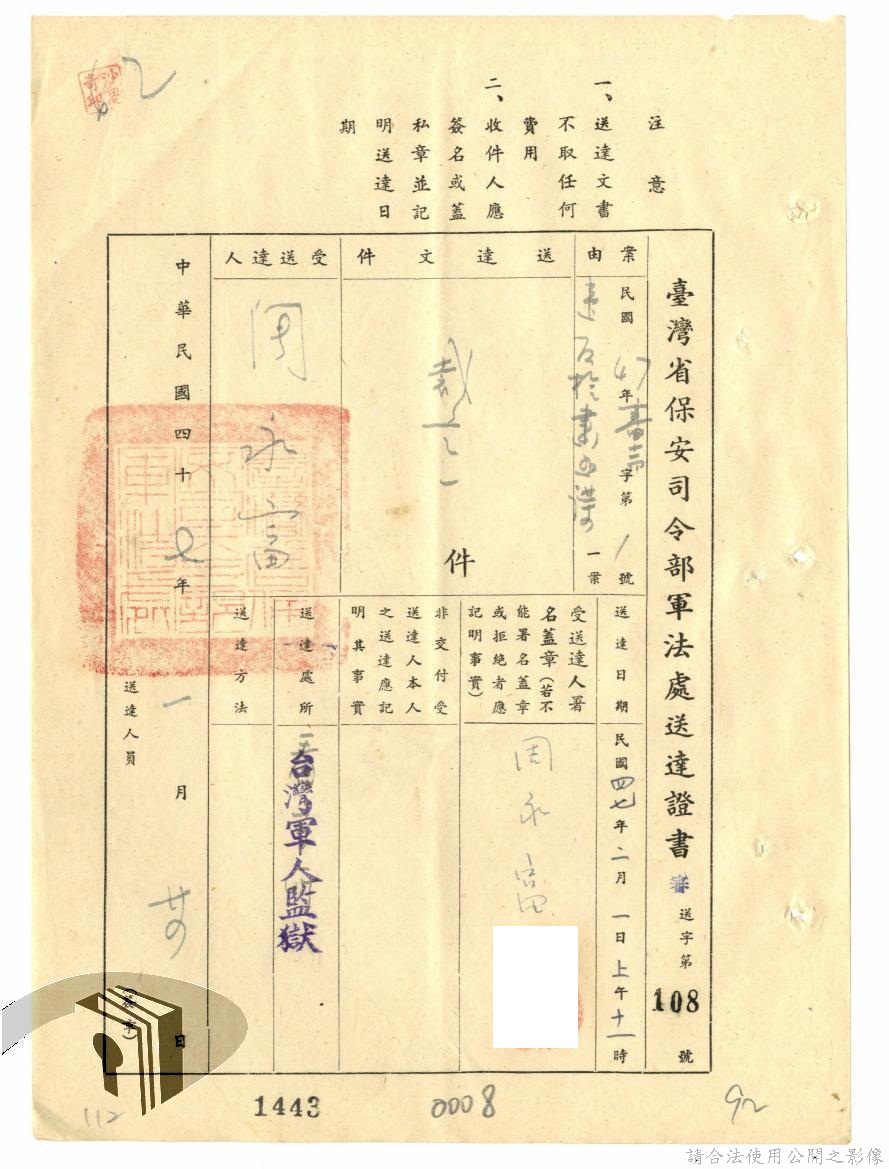 注意
一、送達文書
不取任何
費用
二、收件人應
簽名或蓋
私章並記
明送達日
期
臺灣省保安司令部軍法處送達證書 審 送字第 108 號
案由
民國 47 年 字第 1 號
一案
送達文件
裁定一
件
受送達人
周永富
送達日期
民國四七年二月一日上午十一時
受送達人署
名蓋章(若不
能署名蓋章
或拒絕者應
記明事實)
周永富
非交付受
送達人本人
之送達應記
明其事實
送達處所
台灣軍人監獄
送達方法
中華民國四十七年一月廿日
送達人員
(簽章)
112
1443
0008
92
請合法使用公開之影像